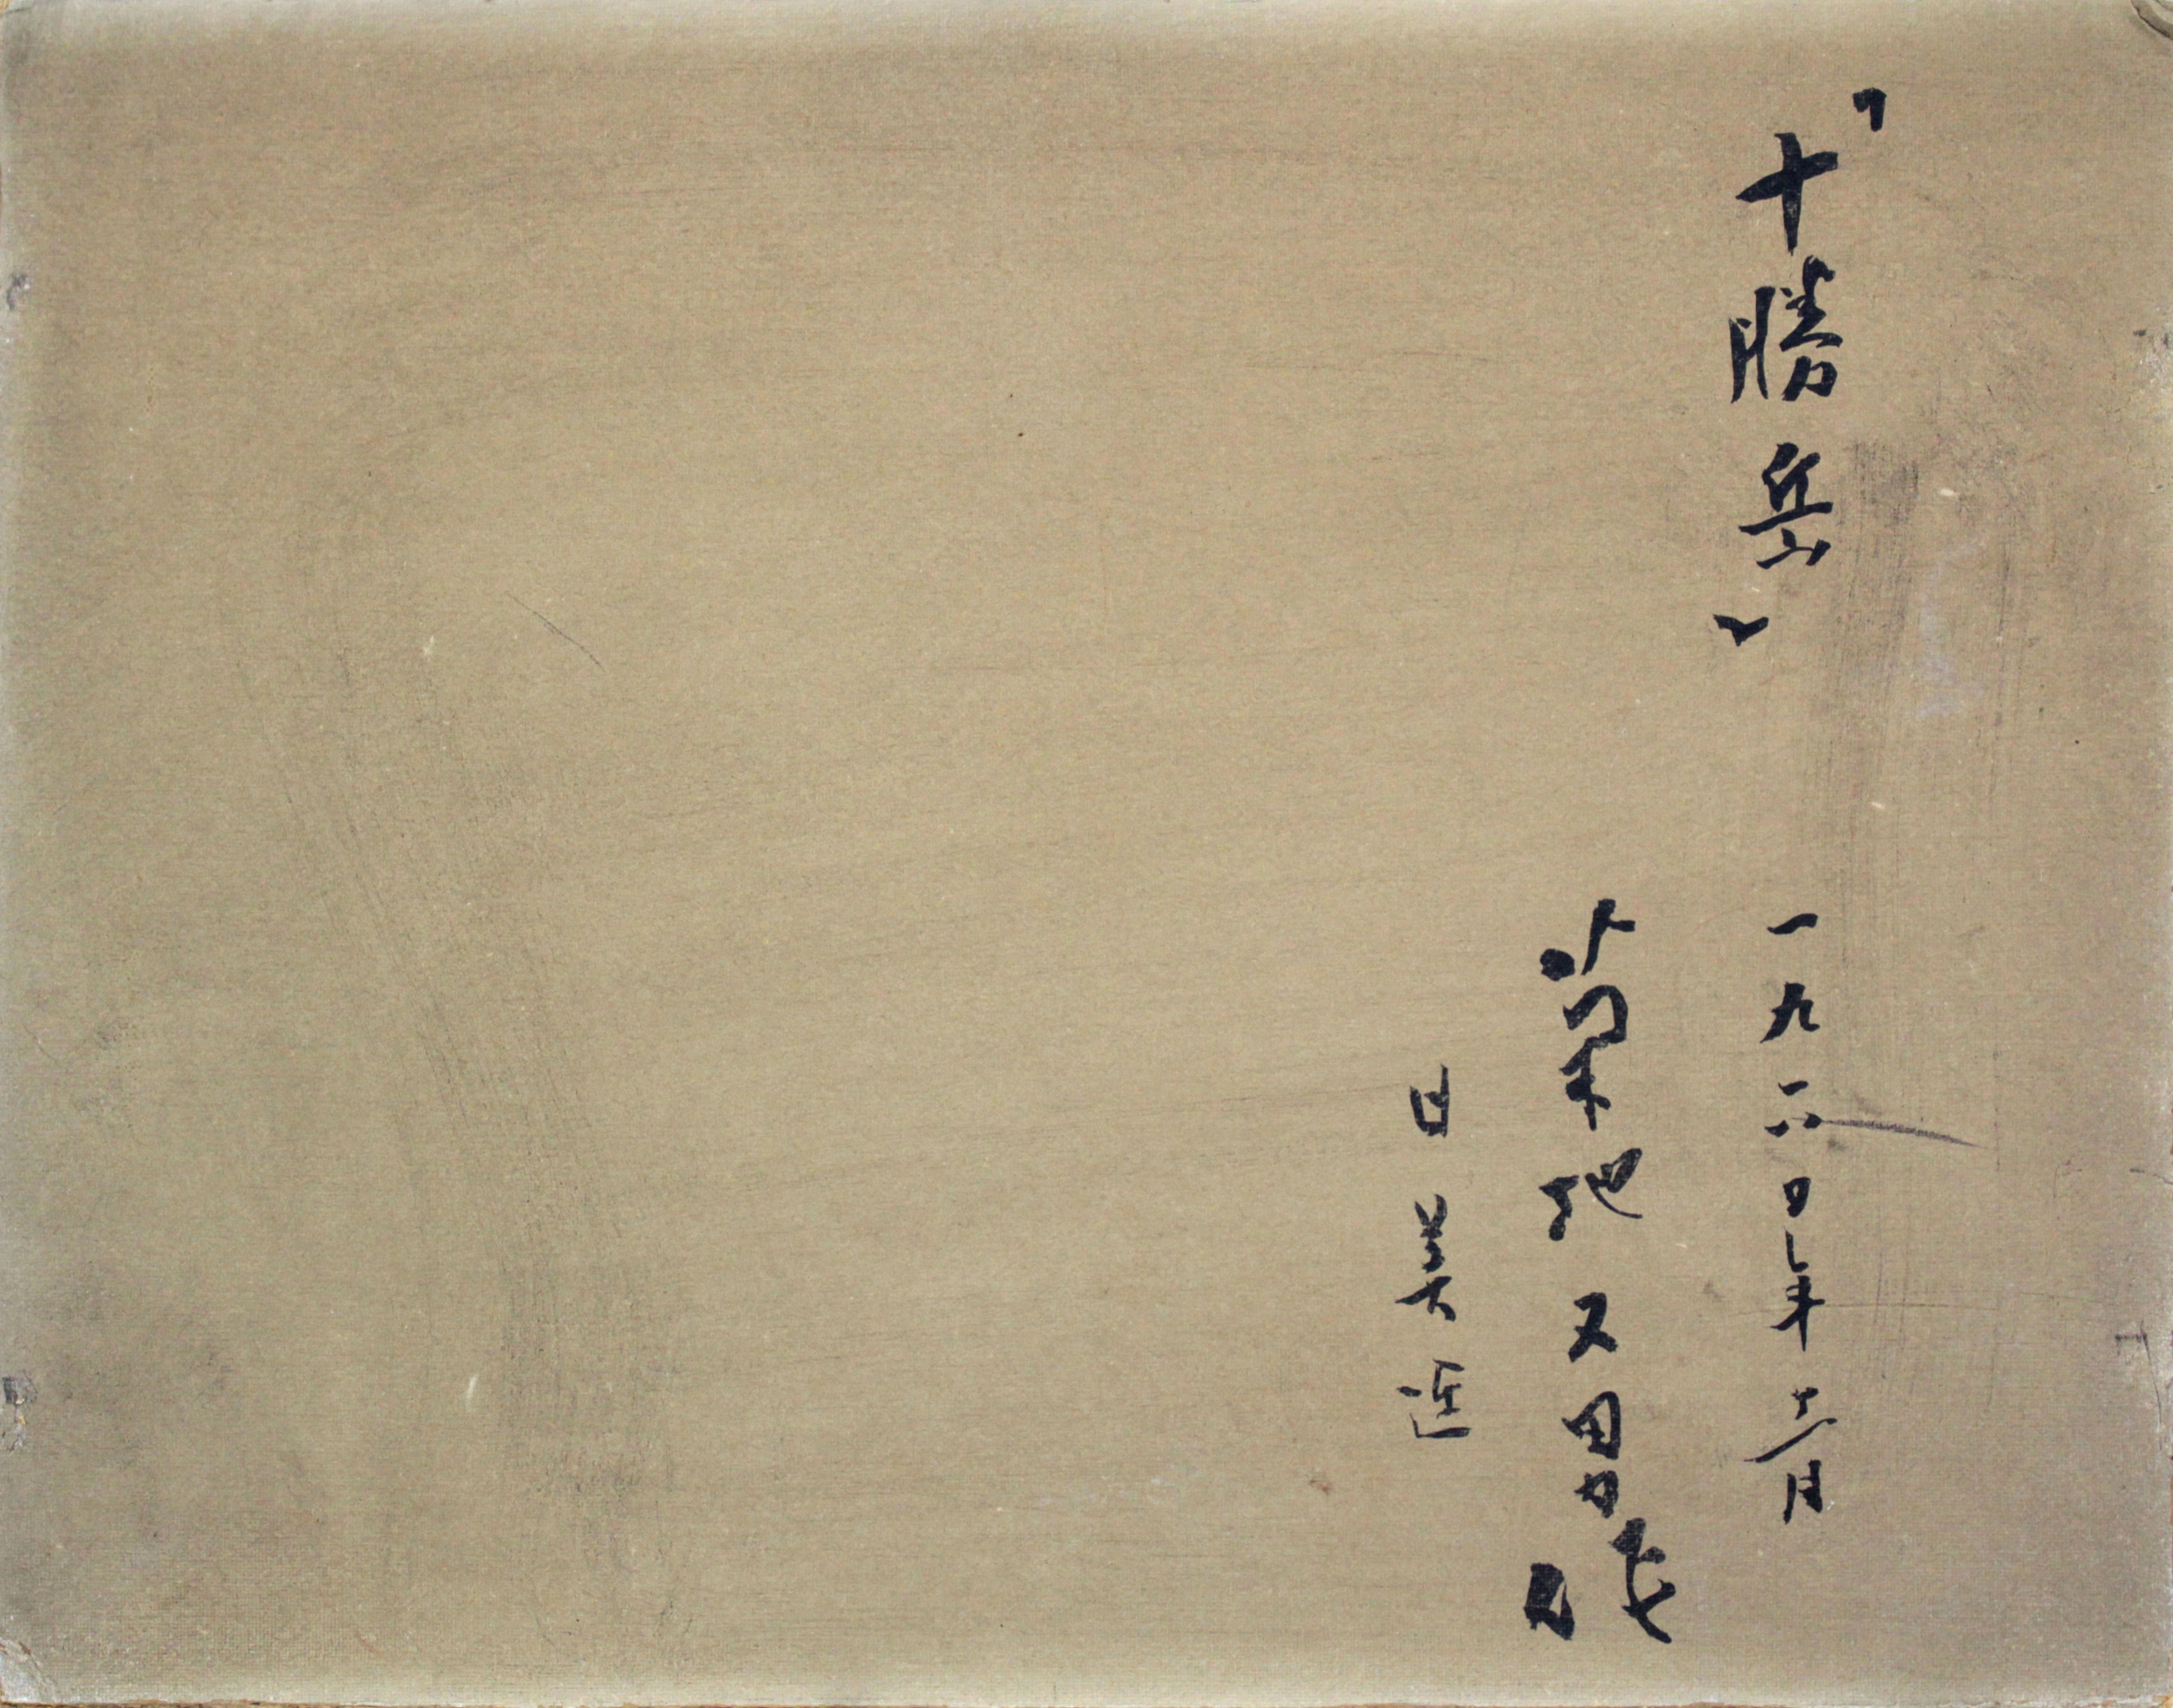 「十勝岳」
一九六〇年十二月
菊地又男
日美連